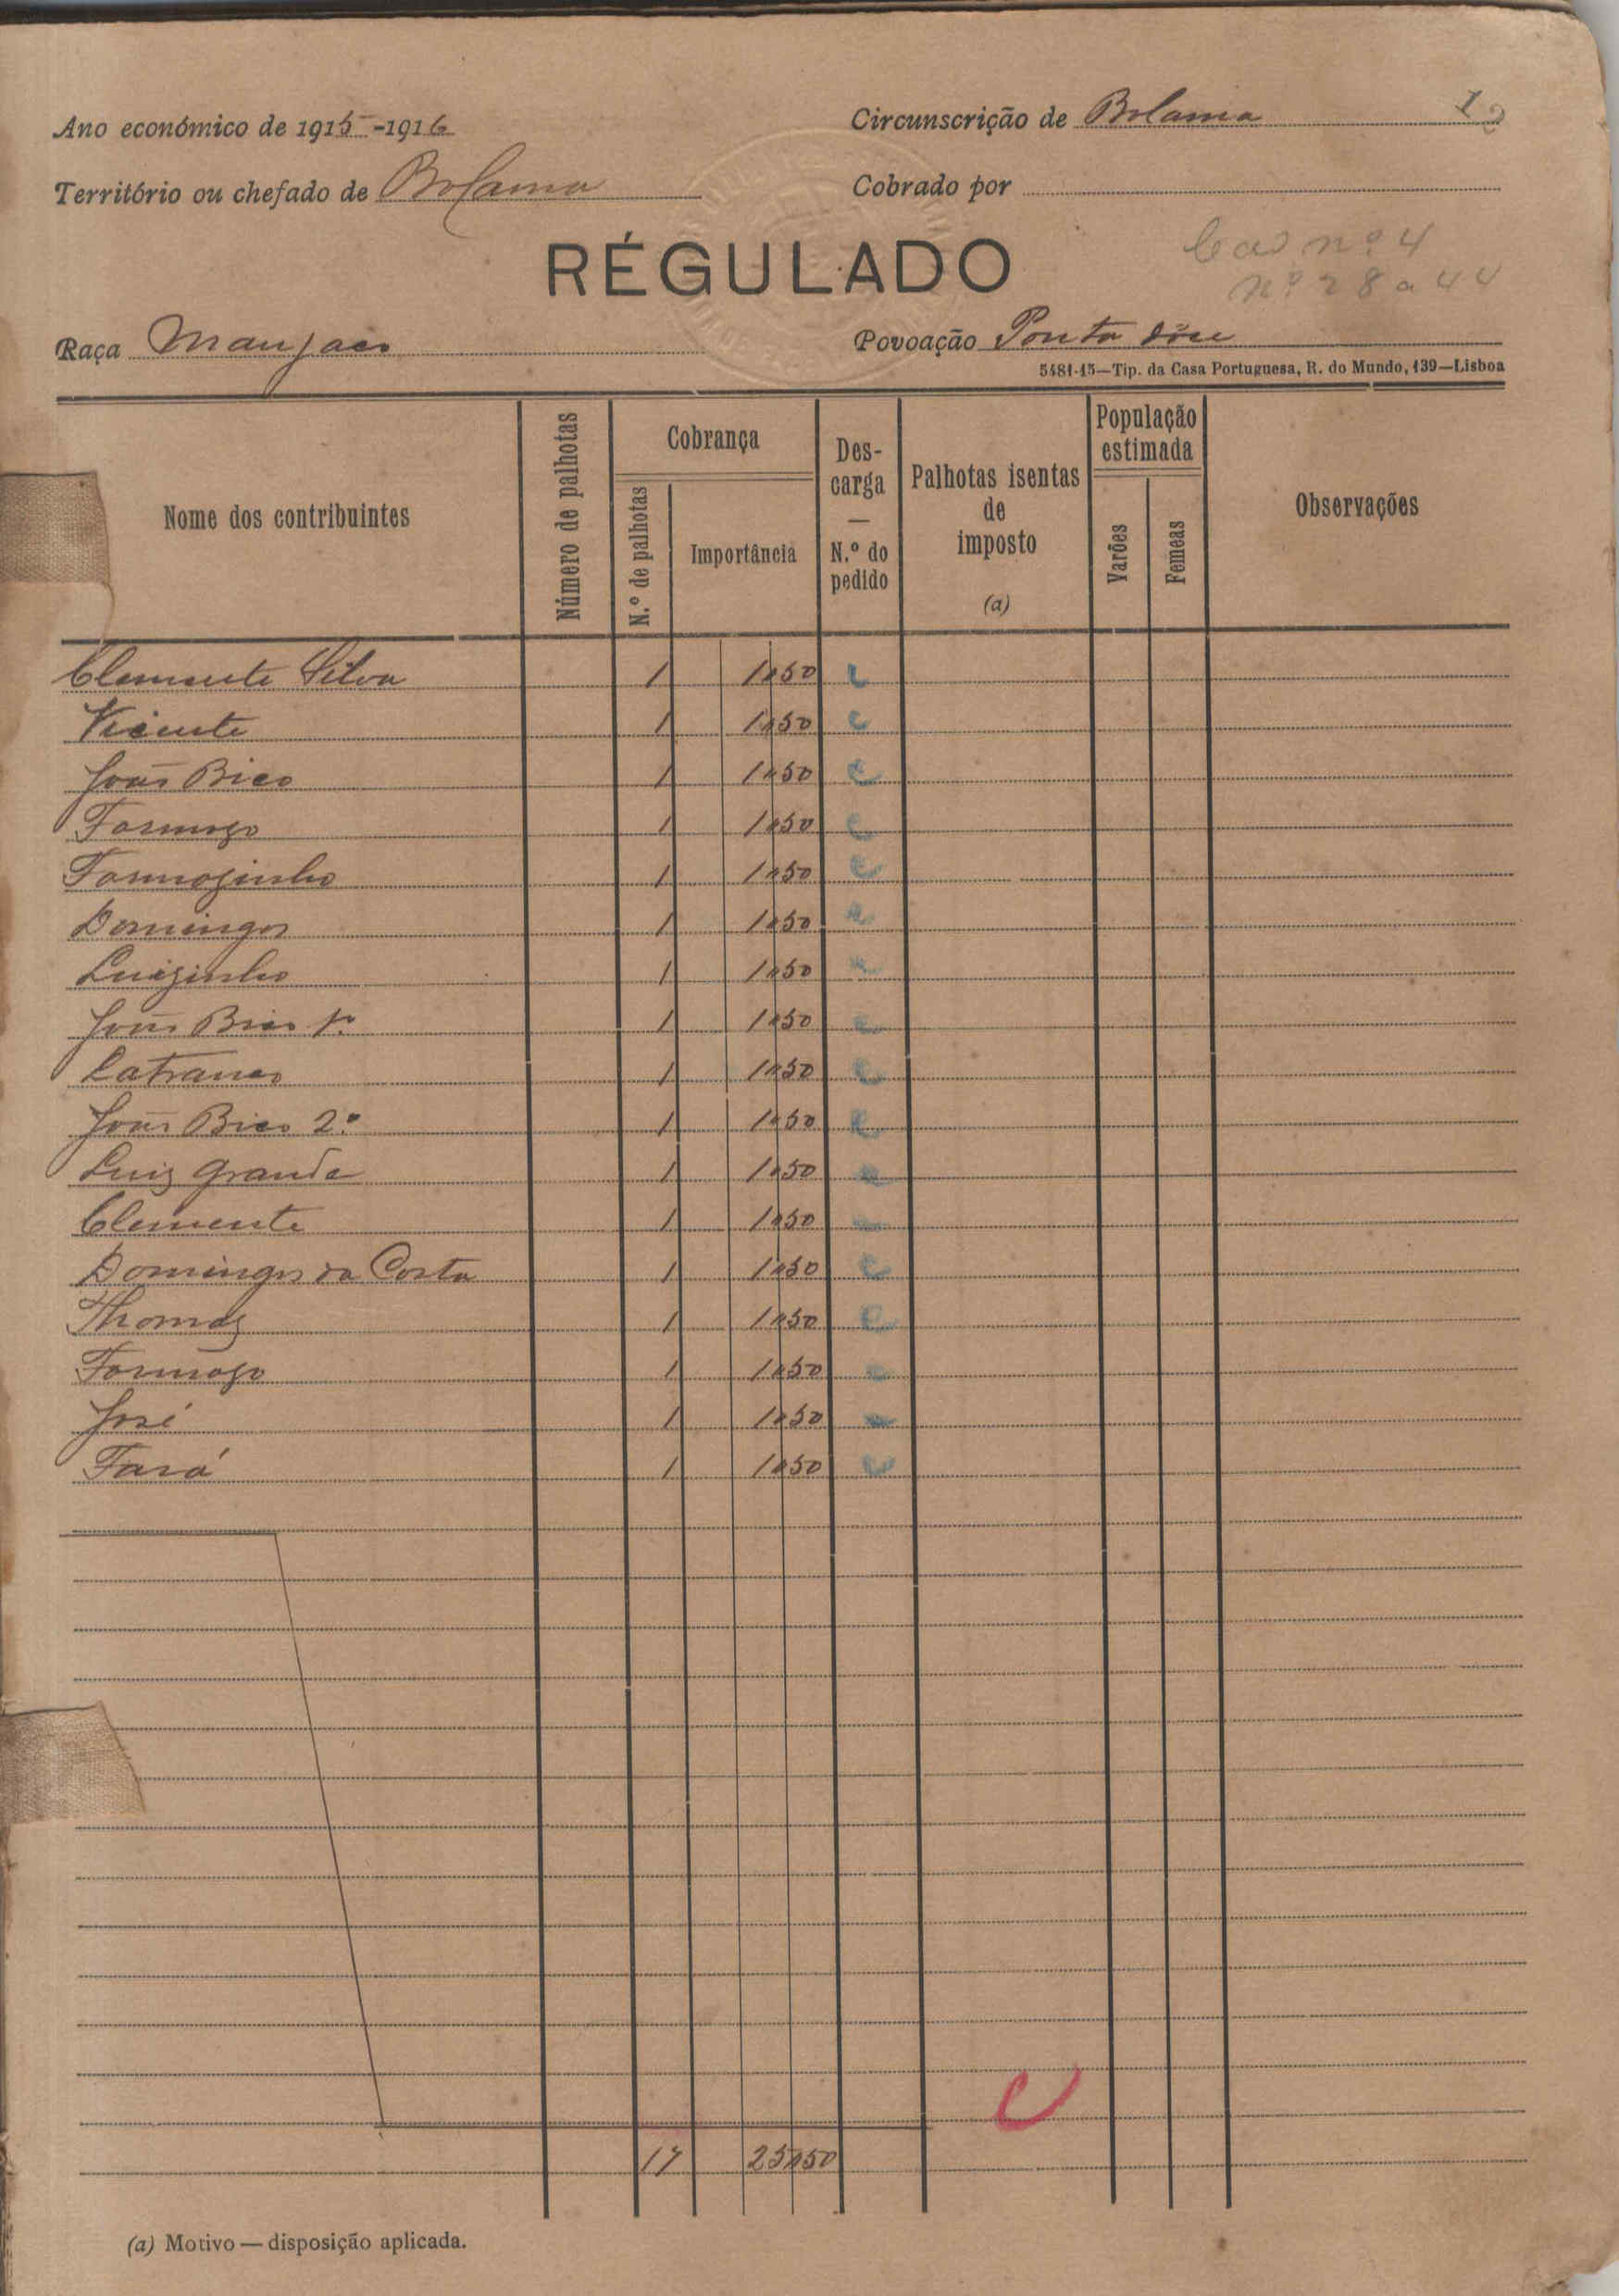 Ano económico de 1915-1916
Circunscrição de Bolama
Território ou chefado de Bolama
Cobrado por
RÉGULADO
Cad nº 4
nº 28 a 44
Raça Manjaco
Povoação Ponta
5481-15—Tip. da Casa Portuguesa, R. do Mundo, 139—Lisboa
Nome dos contribuintes
Número de palhotas
Cobrança
N.º de palhotas
Importância
Des-
carga
—
N.º do
pedido
Palhotas isentas
de
imposto
(a)
População
estimada
Varões
Femeas
Observações
Clemente Silva 1 1$50 C
Vicente 1 1$50 C
João Bico 1 1$50 C
Formozo 1 1$50 C
Formozinho 1 1$50 C
Domingos 1 1$50 C
Luizinho 1 1$50 C
João Bico 1º 1 1$50 C
1 1$50 C
João Bico 2º 1 1$50 C
Luiz Grande 1 1$50 C
Clemente 1 1$50 C
Domingos da Costa 1 1$50 C
Thomaz 1 1$50 C
Formozo 1 1$50 C
José 1 1$50 C
Fará 1 1$50 C
C
17 25$50
(a) Motivo — disposição aplicada.